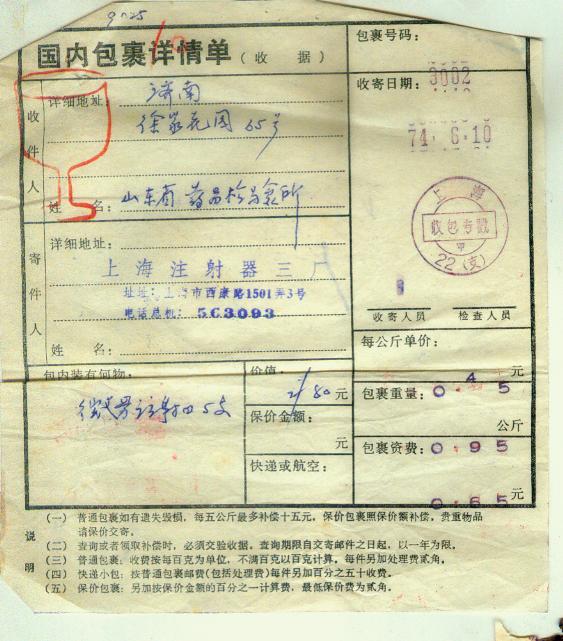 9725
国内包裹详情单（收 据）
包裹号码：
3002
收寄日期：
74.6.10
收件人
详细地址：
济南
徐家花园 65号
姓 名：
山东省药品检验所
上海
收包专戳
22(支)
寄件人
详细地址：
上海注射器三厂
址址：上海市西康路1501弄3号
电话总机：563093
姓 名：
收寄人员 检查人员
每公斤单价： 元
0.45
包内装有何物：
注射 5支
价值：
80元
保价金额：
元
快递或航空：
包裹重量：
公斤
包裹资费：0.95
0.65元
说明
（一）普通包裹如有遗失毁损，每五公斤最多补偿十五元，保价包裹照保价额补偿，贵重物品
请保价交寄。
（二）查询或者领取补偿时，必须交验收据。查询期限自交寄邮件之日起，以一年为限。
（三）普通包裹：收费按每百克为单位，不满百克以百克计算。每件另加处理费贰角。
（四）快递小包：按普通包裹邮费(包括处理费)每件另加百分之五十收费。
（五）保价包裹：另加按保价金额的百分之一计算费，最低保价费为贰角。